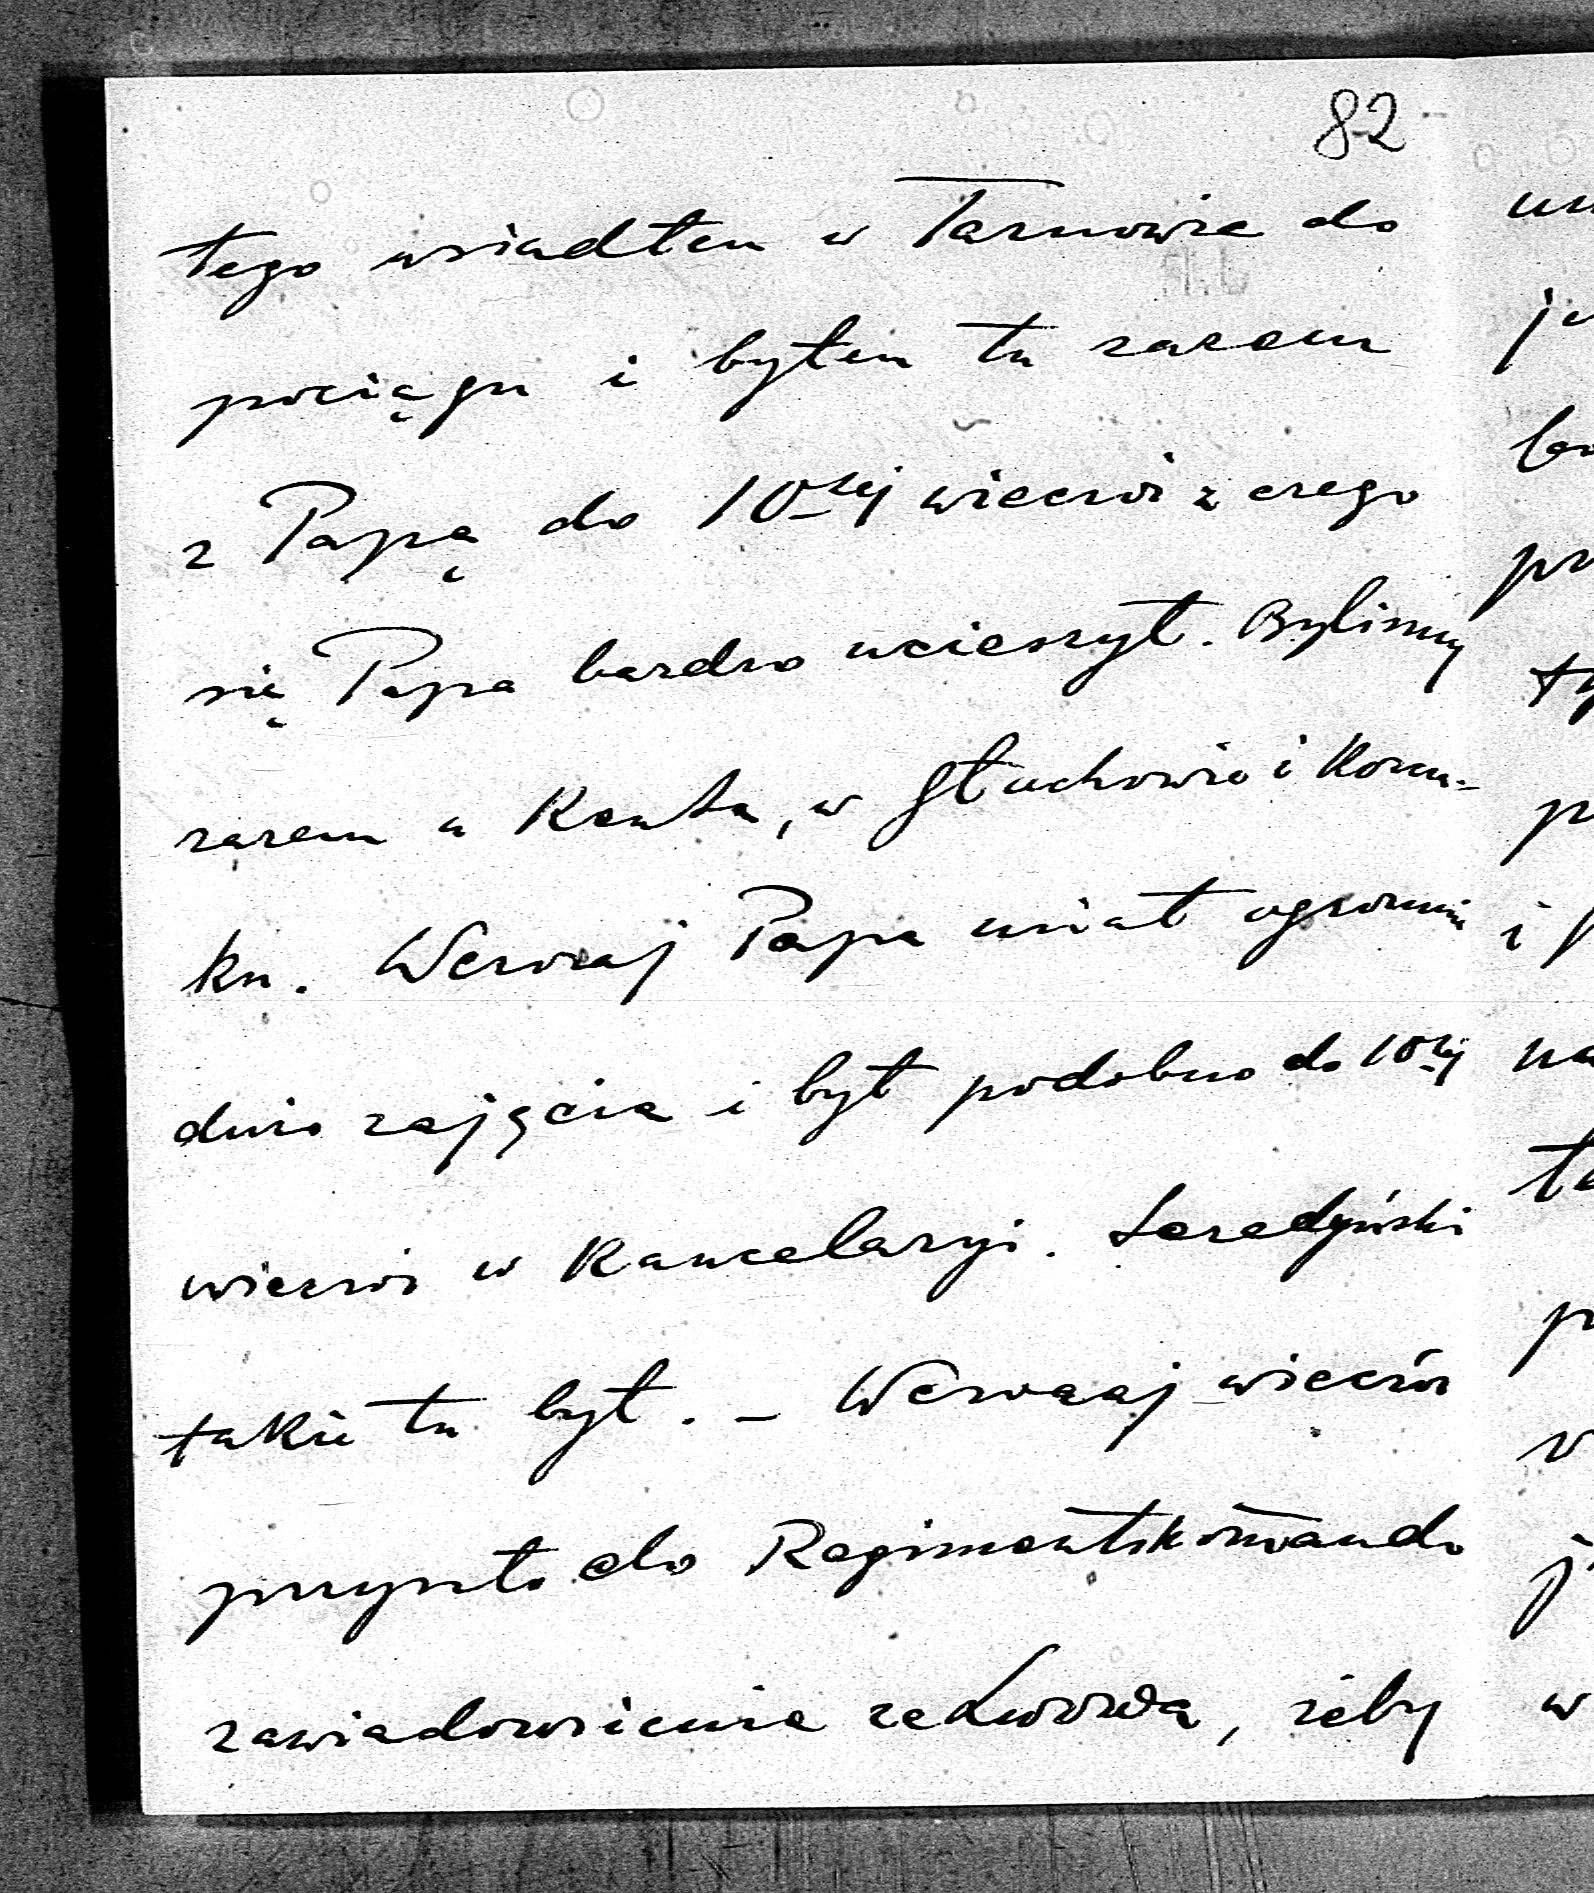 82
tego wsiadłem w Tarnowie do
pociągu i byłem tu razem
z Papą do 10tej wieczór z czego
się Papa bardzo ucieszył. Byliśmy
razem u Kenta, w Głuchowie i Korcu-
ku. Wczoraj Papa miał ogromnie
dużo zajęcia i był podobno do 10tej
wieczór w Kancelaryi.
także tu był. – Wczoraj wieczór
przyszło do Regimentskommando
zawiadomienie ze Lwowa, żeby